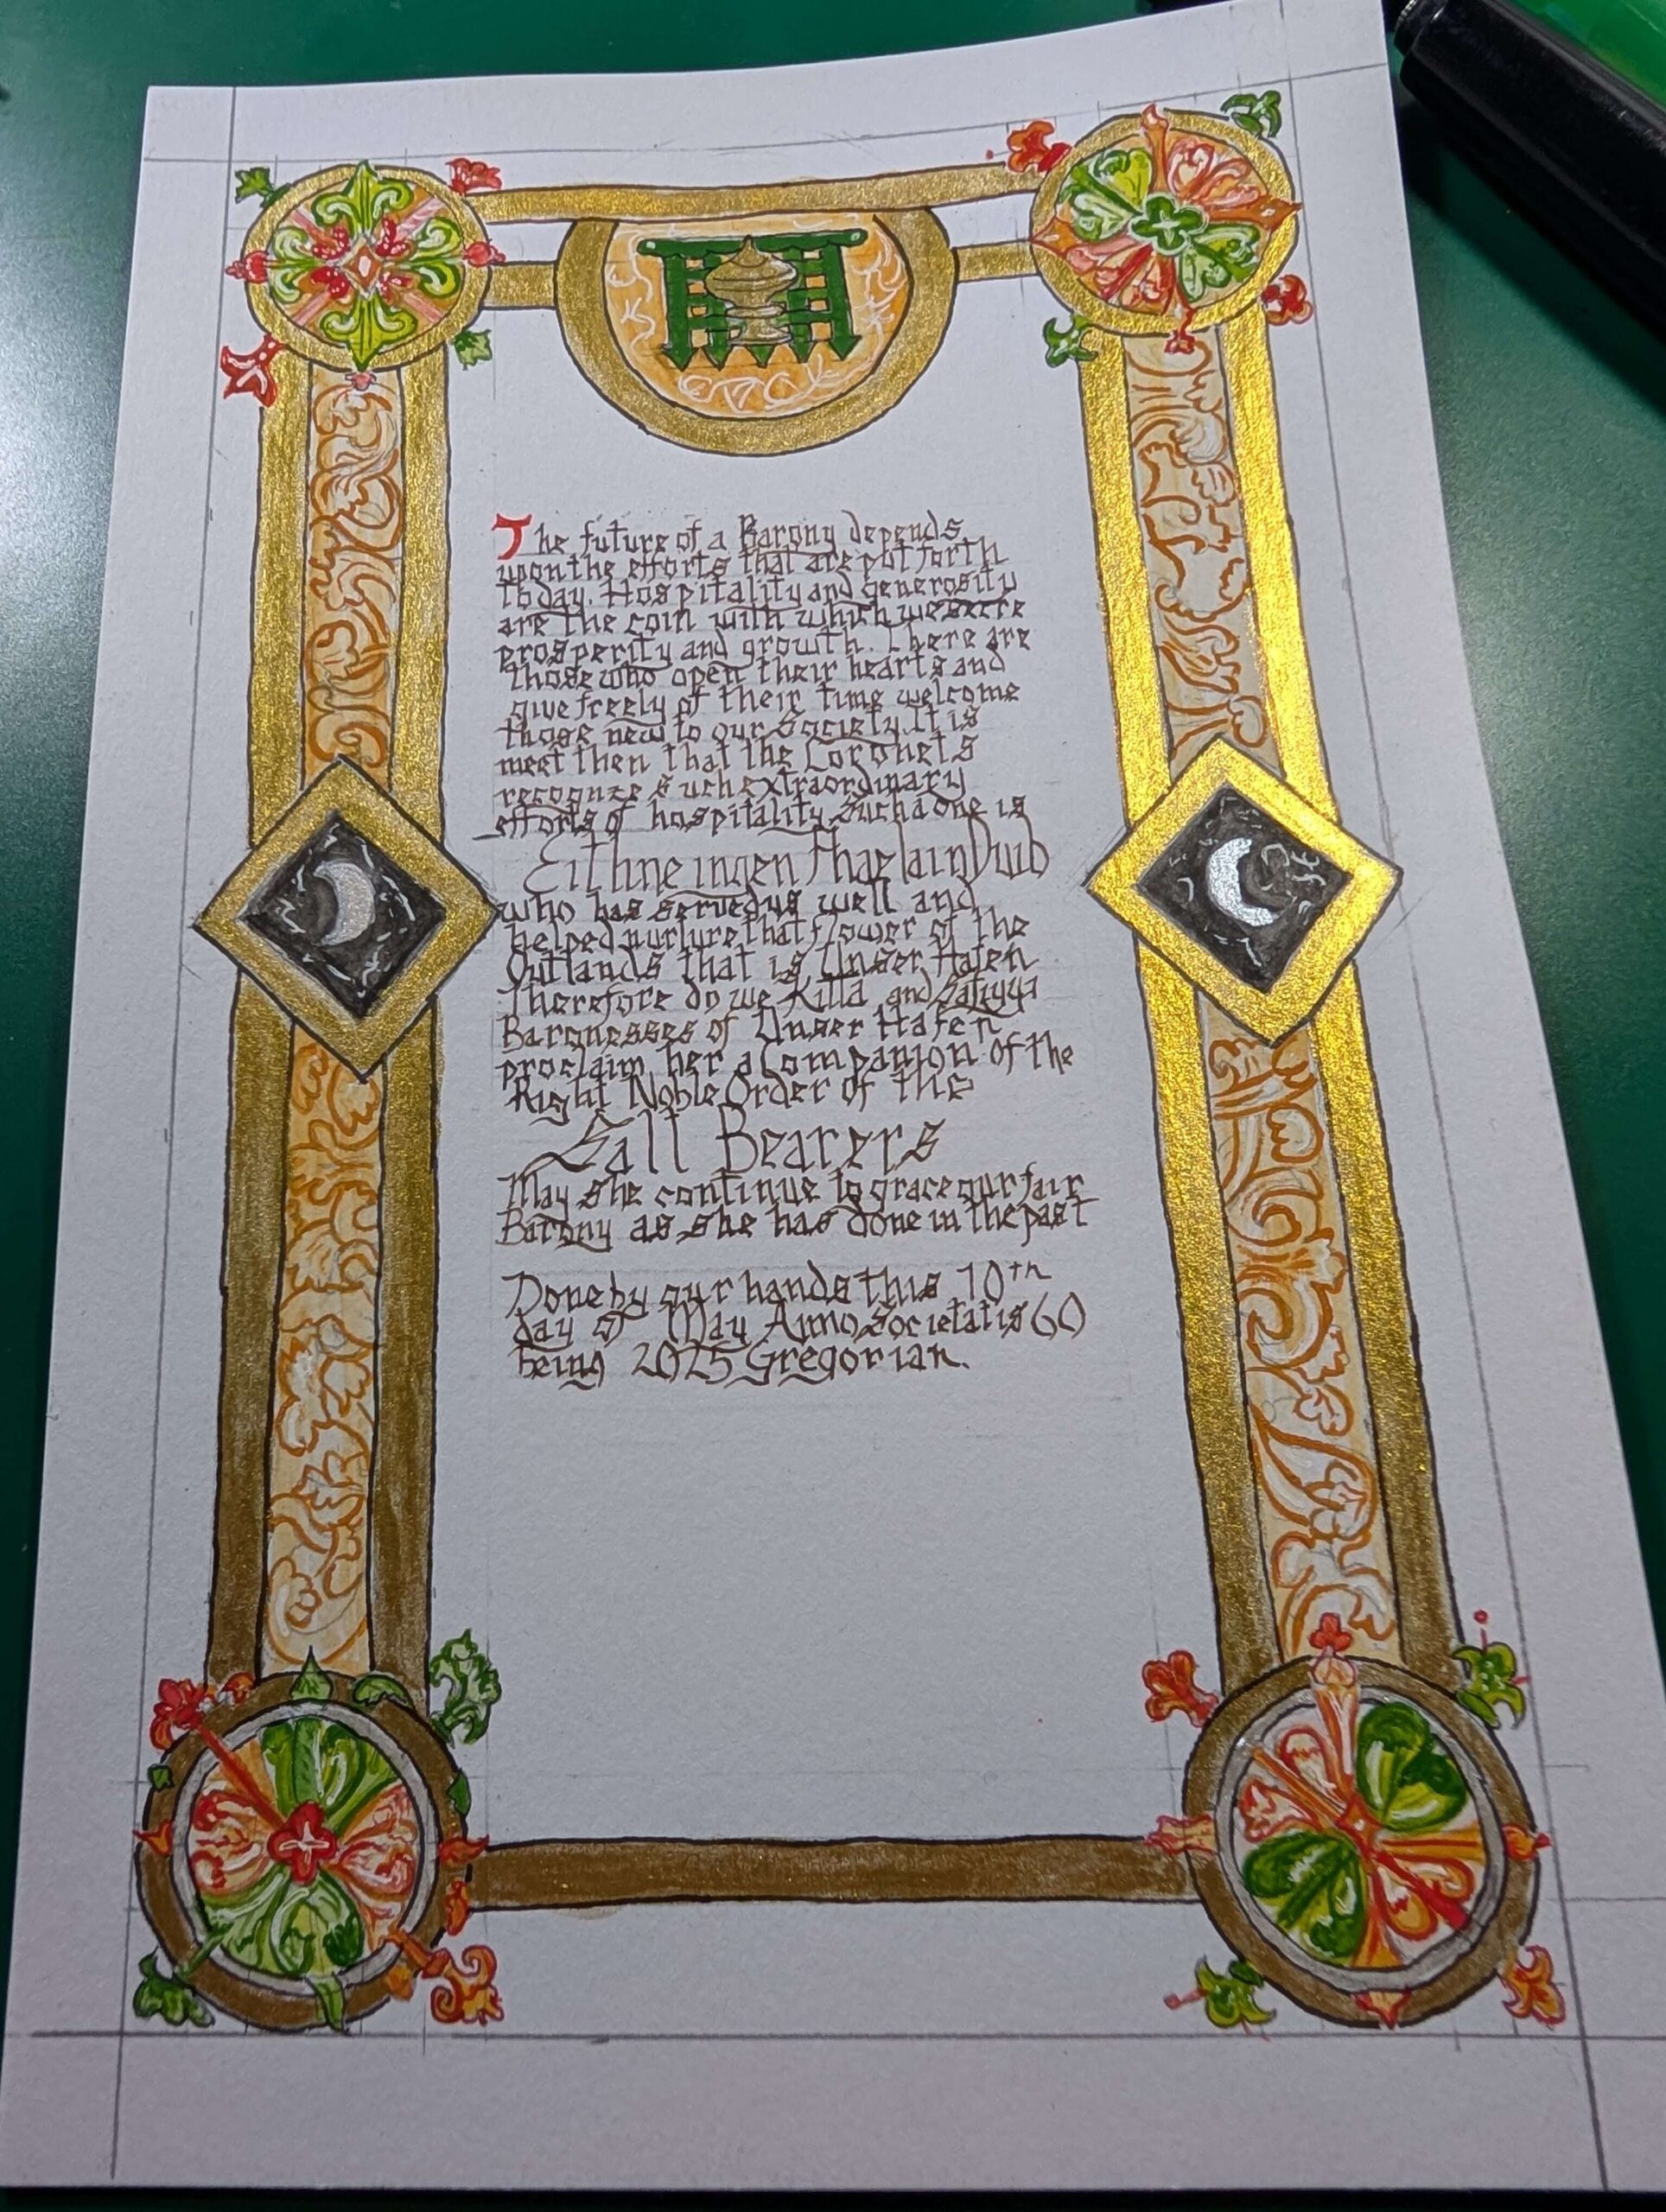 The future of a Barony depends
upon the efforts that are put forth
today. Hospitality and generosity
are the coin with which we
prosperity and growth. There are
those who open their hearts and
give freely of their time welcome
those new to our Society. It is
meet then that the Coronets
recognze such extraordinary
efforts of hospitality. Such a one is
Eithne ingen Fhaelain Dwib
who has served us well and
helped nurture that flower of the
Outlands that is Unser Hafen
Therefore do we Killa and Safiyya
Baronesses of Unser Hafen
proclaim her a Companion of the
Right Noble Order of the
Salt Bearers
May she continue to grace our fair
Barony as she has done in the past
Done by our hands this 10th
day of May Anno Societatis 60
being 2025 Gregorian.